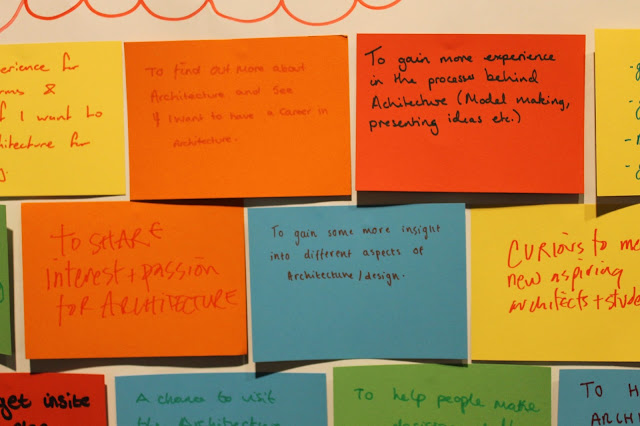 erience for
rms &
f I want to
hitecture for
To find out more about
Architecture and see
if I want to have a career in
Architecture.
To gain more experience
in the processes behind
Achitecture (Model making,
presenting ideas etc.)
To SHARE
interest + passion
for ARCHITECTURE
To gain some more insight
into different aspects of
Architecture/design.
CURIOUS to me
new aspiring
architects + stude
get insite
A chance to visit
the Architecture
To help people make
TO H
ARCH